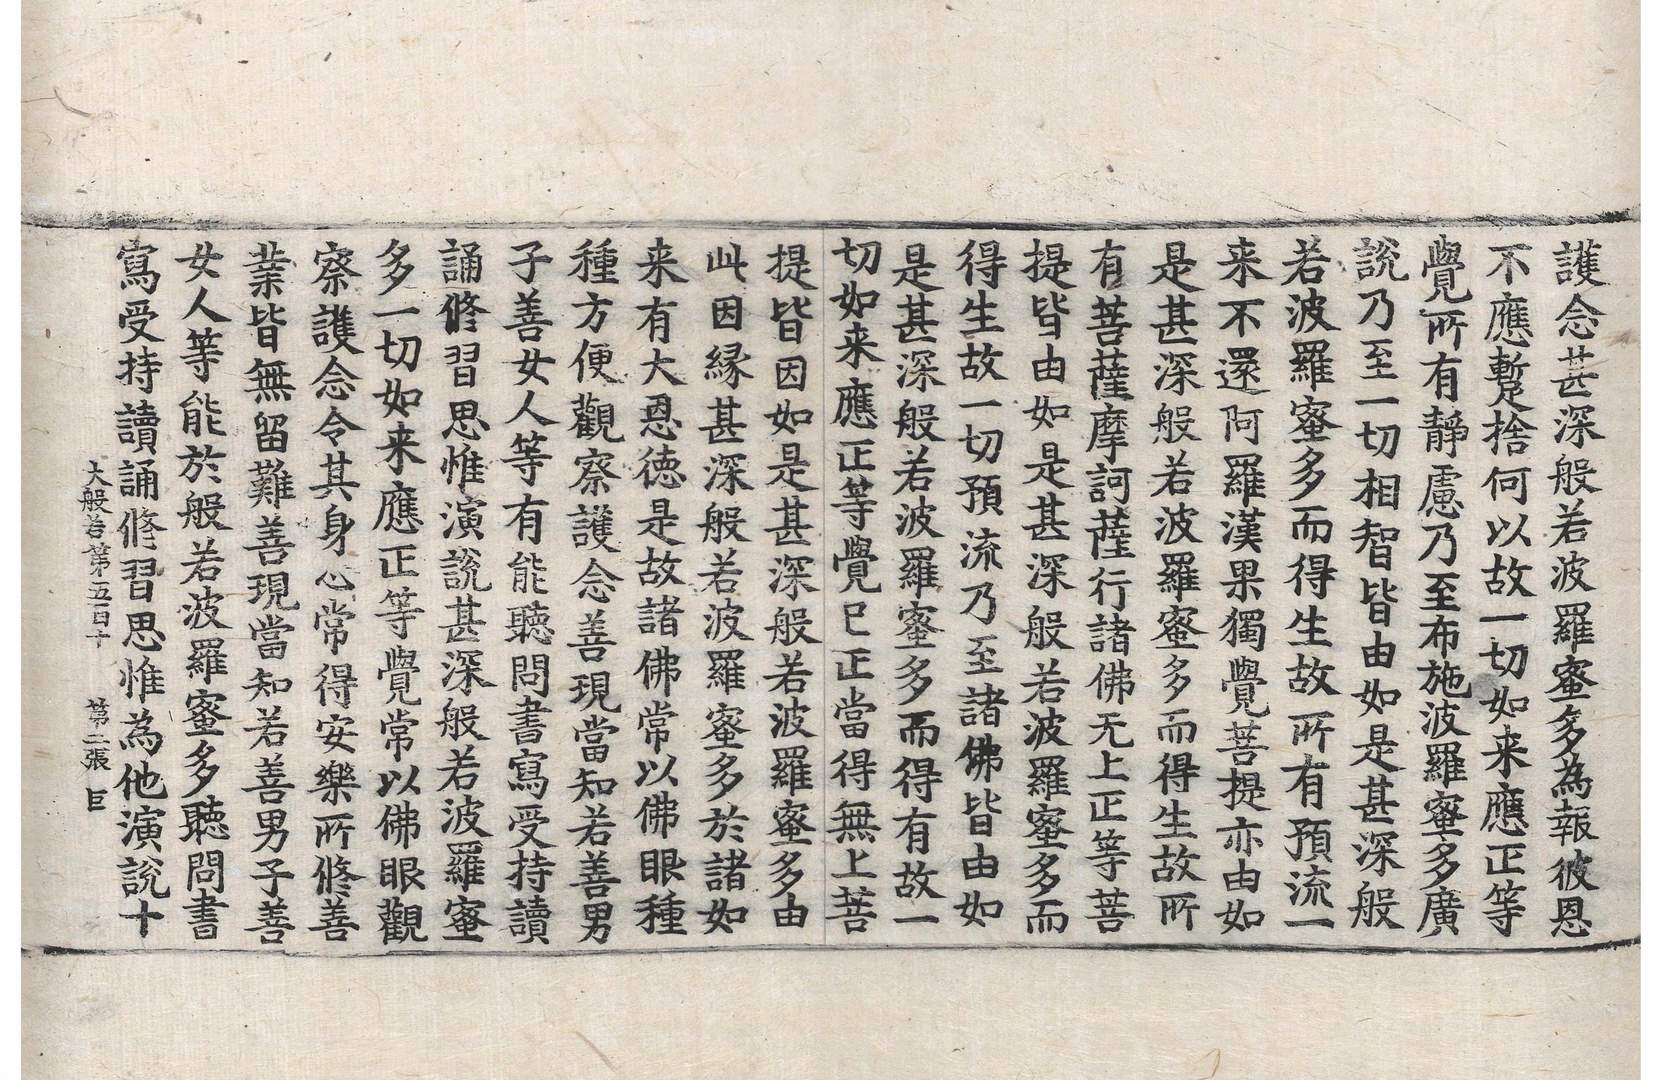 護念甚深般若波羅蜜多為報彼恩
不應暫捨何以故一切如来應正等
覺所有靜慮乃至布施波羅蜜多廣
說乃至一切相智皆由如是甚深般
若波羅蜜多而得生故所有預流一
来不還阿羅漢果獨覺菩提亦由如
是甚深般若波羅蜜多而得生故所
有菩薩摩訶薩行諸佛无上正等菩
提皆由如是甚深般若波羅蜜多而
得生故一切預流乃至諸佛皆由如
是甚深般若波羅蜜多而得有故一
切如来應正等覺已正當得無上菩
提皆因如是甚深般若波羅蜜多由
此因緣甚深般若波羅蜜多於諸如
来有大恩德是故諸佛常以佛眼種
種方便觀察護念善現當知若善男
子善女人等有能聽問書寫受持讀
誦修習思惟演說甚深般若波羅蜜
多一切如来應正等覺常以佛眼觀
察護念令其身心常得安樂所修善
業皆無留難善現當知若善男子善
女人等能於般若波羅蜜多聽問書
寫受持讀誦修習思惟為他演說十
大般若第五百十　第二張　巨